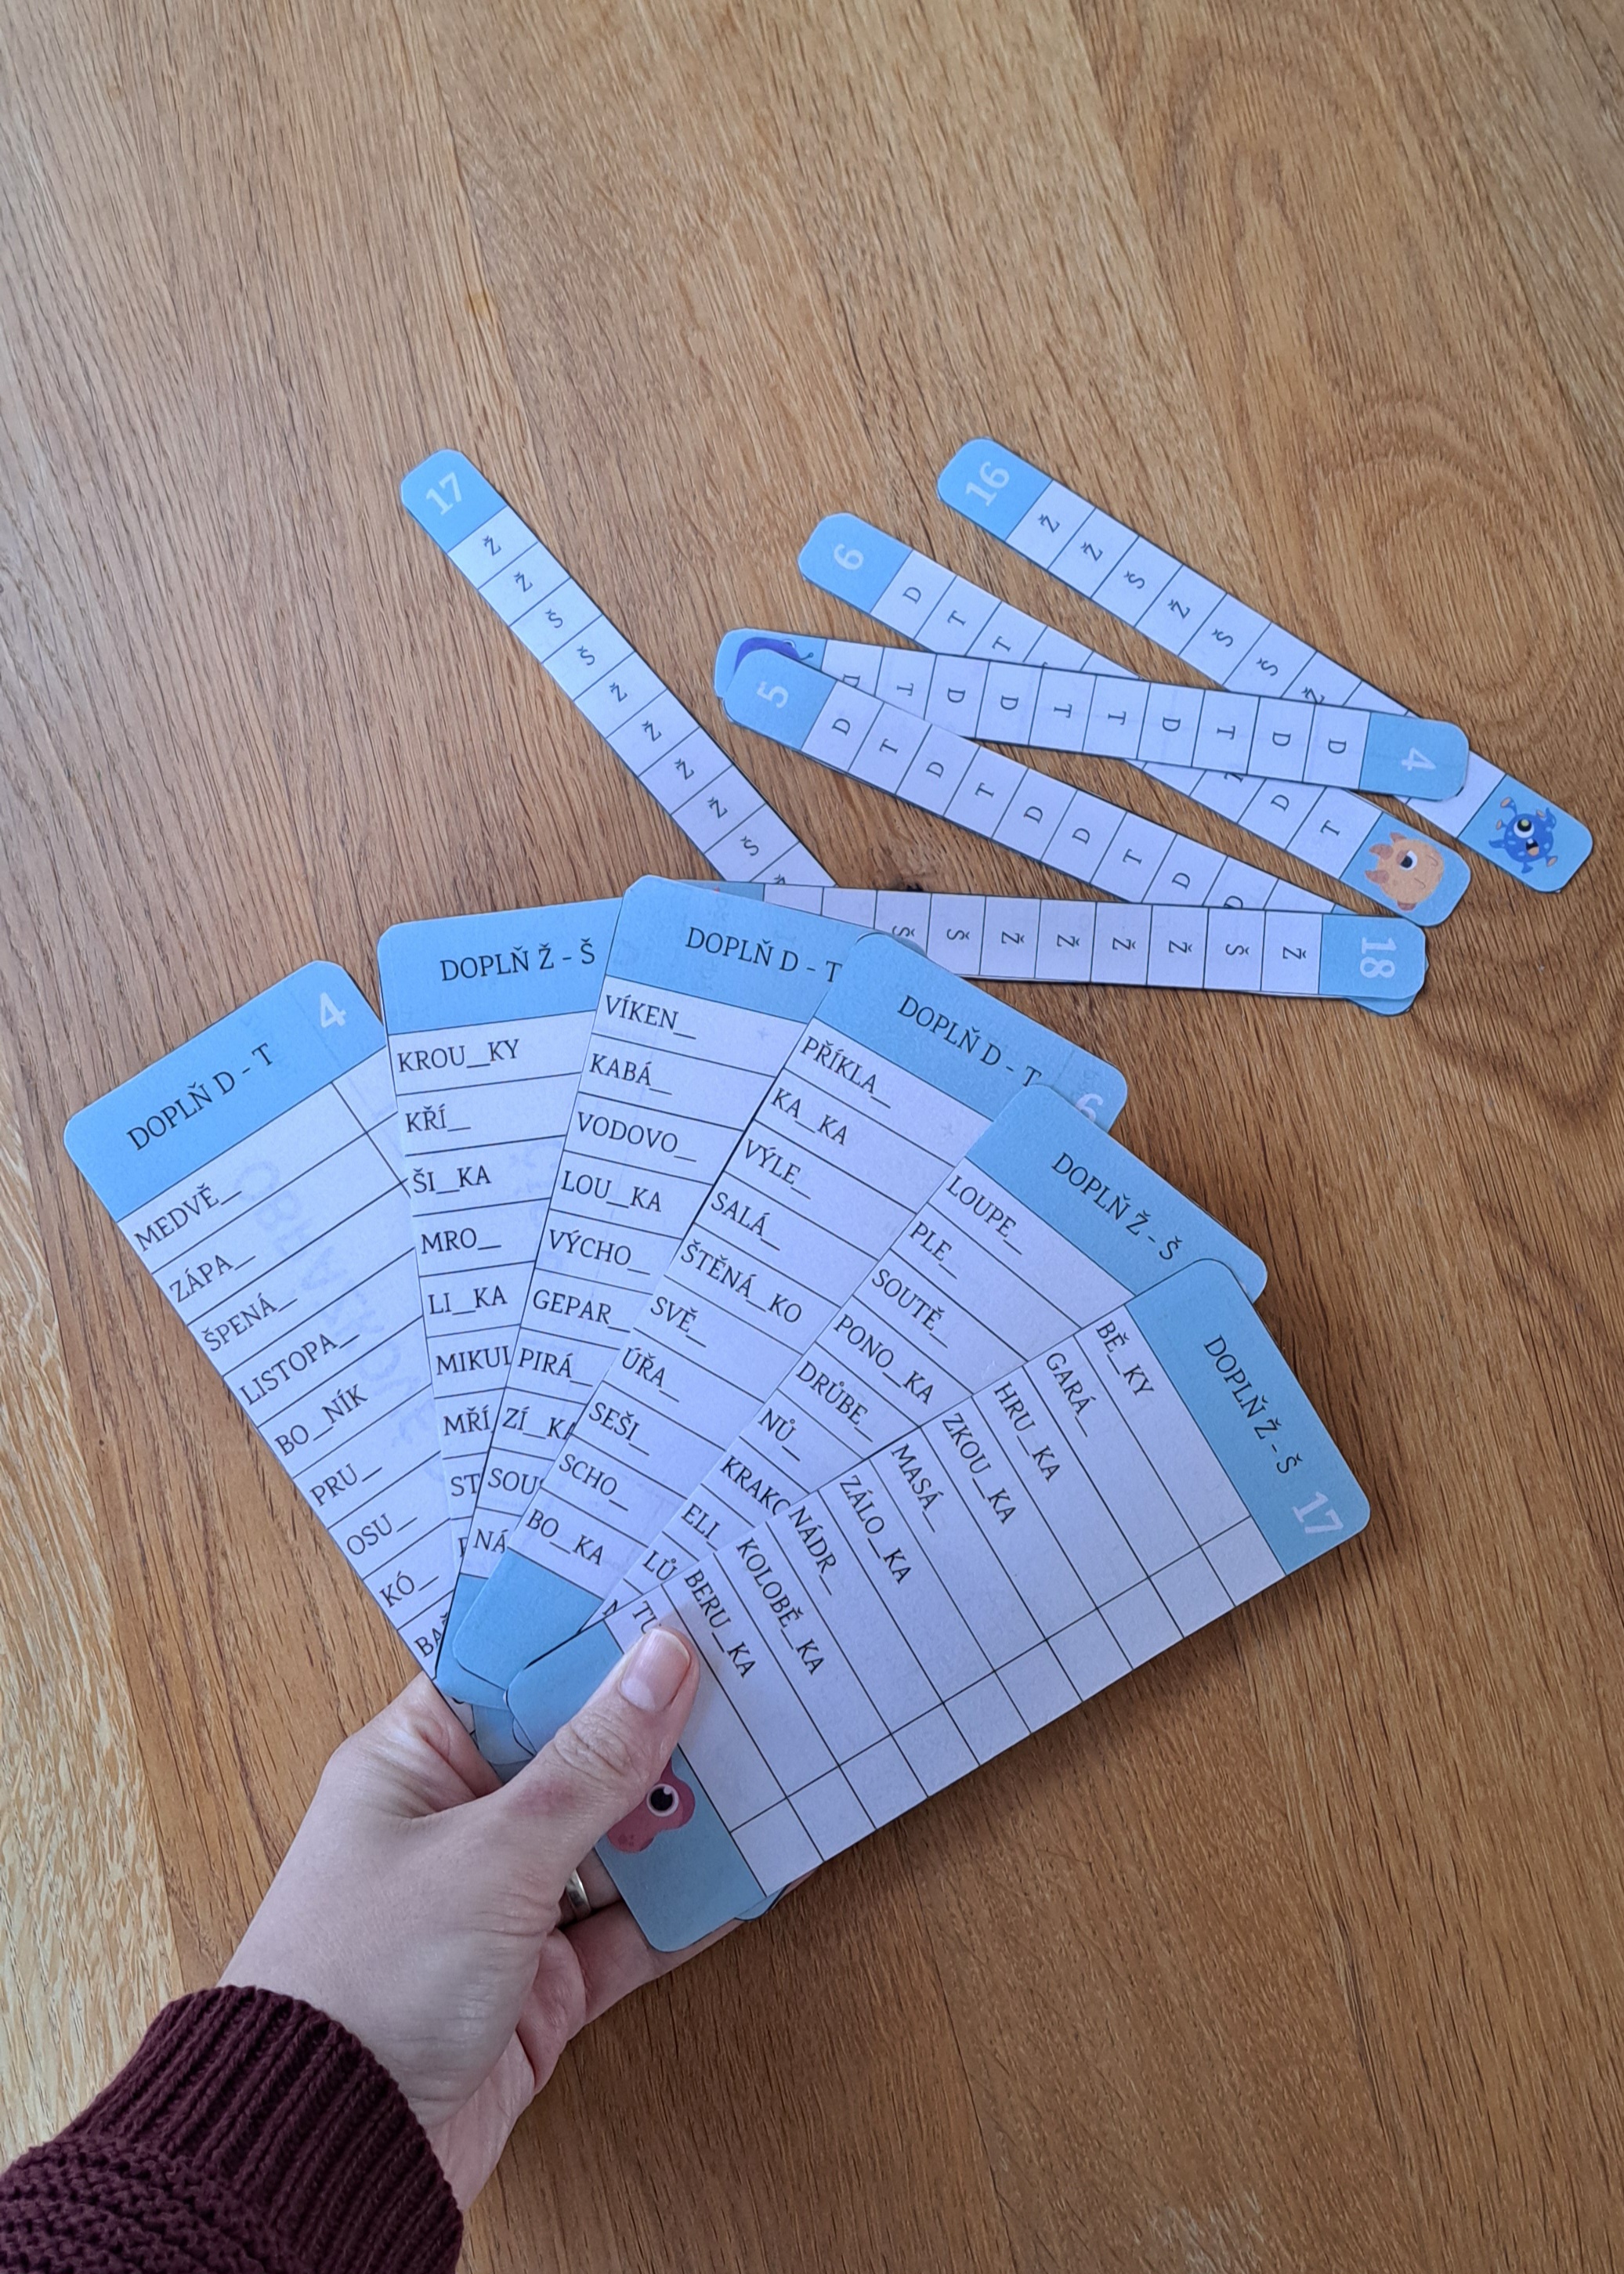 17
Ž
Ž
Š
Š
Ž
Ž
Ž
Ž
Š
16
Ž
Ž
Š
Ž
Š
Š
Ž
6
D
T
T
D
T
4
D
D
T
D
T
T
D
D
T
5
D
T
D
T
D
D
T
D
D
18
Ž
Š
Ž
Ž
Ž
Ž
Š
Š
DOPLŇ D - T
4
MEDVĚ_
ZÁPA_
ŠPENÁ_
LISTOPA_
BO_NÍK
PRU_
OSU_
KÓ_
DOPLŇ Ž - Š
KROU_KY
KŘÍ_
ŠI_KA
MRO_
LI_KA
MIKUL
MŘÍ
ST
DOPLŇ D - T
VÍKEN_
KABÁ_
VODOVO_
LOU_KA
VÝCHO_
GEPAR_
PIRÁ_
ZÍ_KA
SOU
NÁ
DOPLŇ D - T
6
PŘÍKLA_
KA_KA
VÝLE_
SALÁ_
ŠTĚNÁ_KO
SVĚ_
ÚŘA_
SEŠI_
SCHO_
BO_KA
DOPLŇ Ž - Š
LOUPE_
PLE_
SOUTĚ_
PONO_KA
DRŮBE_
NŮ_
KRAKO
ELI_
LŮ
DOPLŇ Ž - Š
17
BĚ_KY
GARÁ_
HRU_KA
ZKOU_KA
MASÁ_
ZÁLO_KA
NÁDR_
KOLOBĚ_KA
BERU_KA
TU